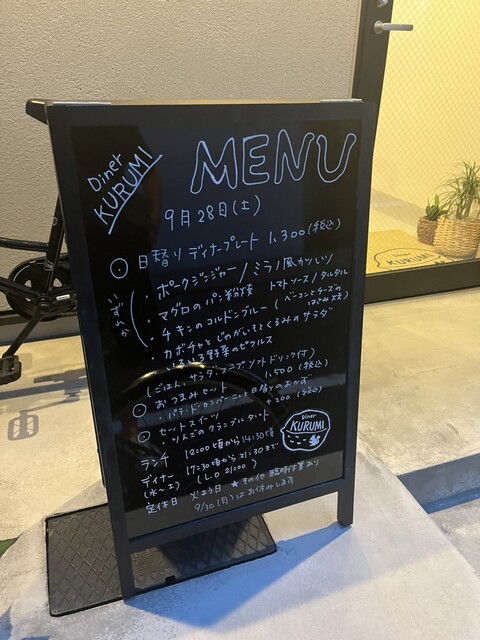 Diner
KURUMI
MENU
9月28日(土)
○日替り ディナープレート 1,300(税込)
いずれか
・ポークジンジャー/ミラノ風カツレツ
・マグロのパン粉焼 トマトソース/タルタル
・チキンのコルドンブルー(ベーコンとチーズの
はさみ焼)
・カボチャとじゃがいもとくるみのサラダ
野菜のピクルス
(ごはん、サラダ、スープ、ソフトドリンク付)
○おつまみセット 1,500(税込)
・パテ・ド・カンパーニュと日替りのおかず
○セットスイーツ +200(税込)
・りんごのクランブルタルト
Diner
KURUMI
ランチ 12:00頃から14:30頃
ディナー 17:30頃から21:30まで
(水〜土) (L.O 21:00)
定休日 火よう日 ★その他 臨時休業あり
9/30(月)はお休みします
KURUMI